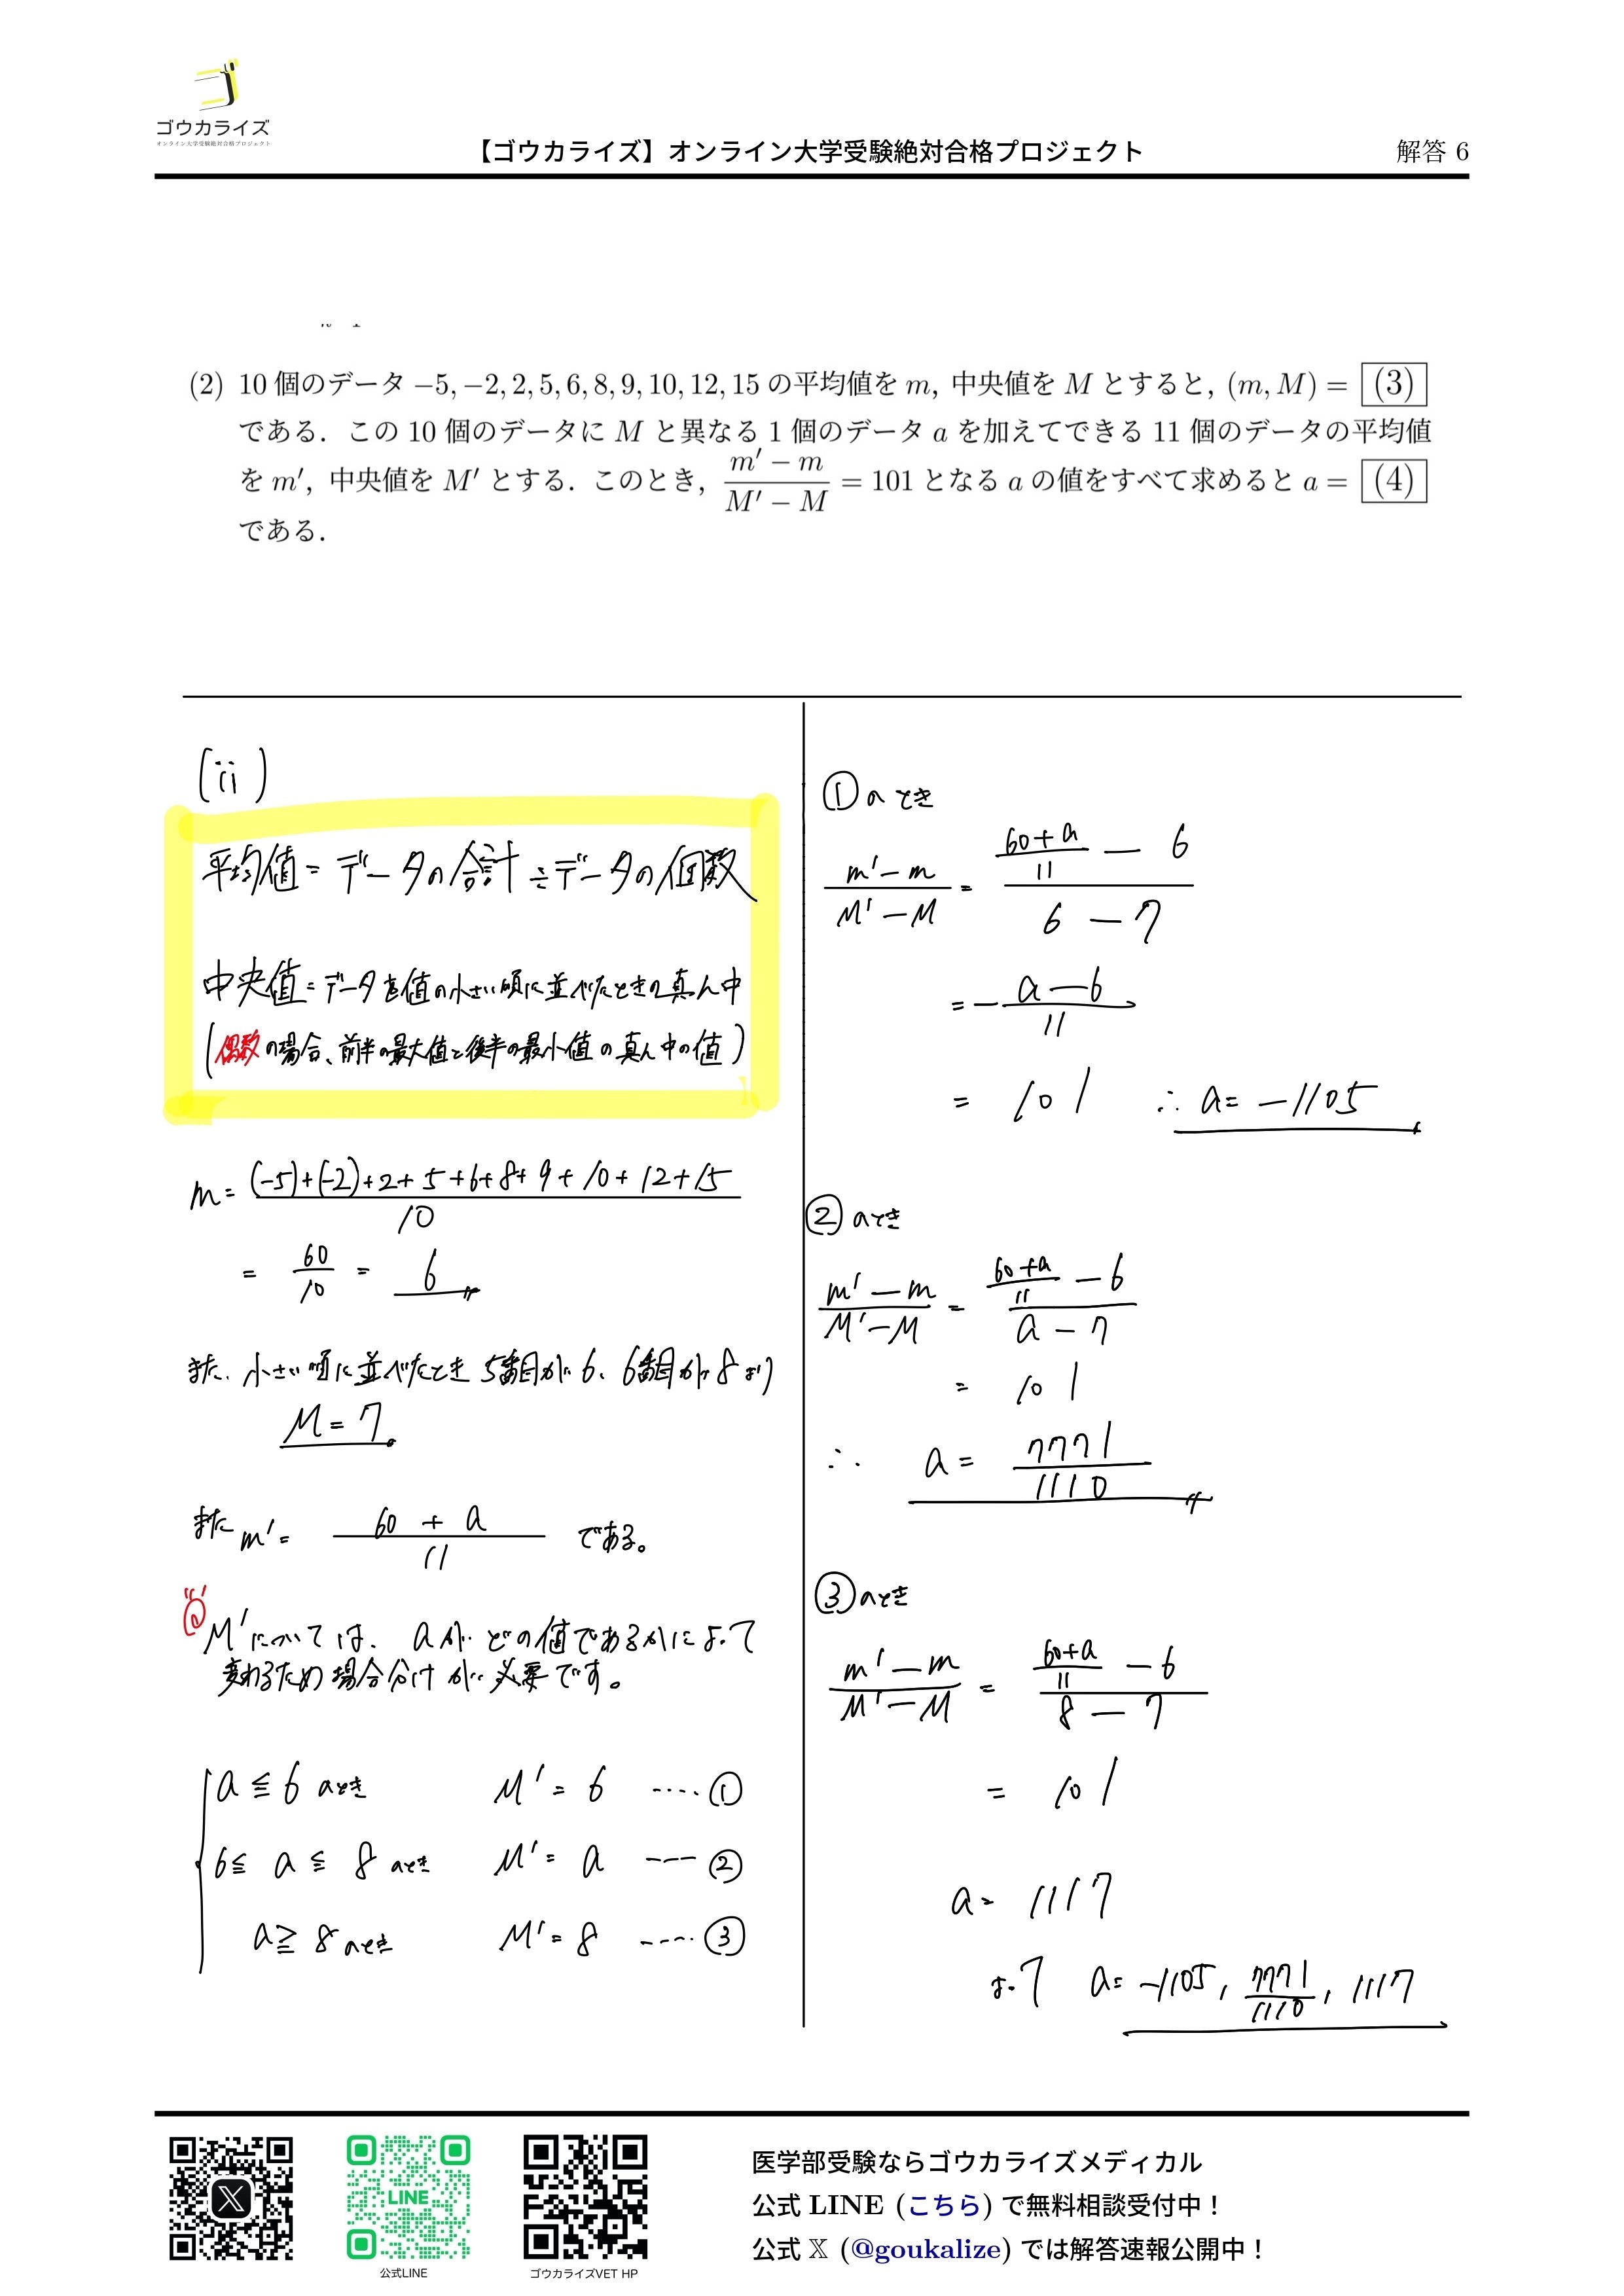 ゴウカライズ
オンライン大学受験絶対合格プロジェクト
【ゴウカライズ】オンライン大学受験絶対合格プロジェクト
解答 6
(2) 10 個のデータ −5, −2, 2, 5, 6, 8, 9, 10, 12, 15 の平均値を m, 中央値を M とすると, (m, M) = (3)
である. この 10 個のデータに M と異なる 1 個のデータ a を加えてできる 11 個のデータの平均値
を m′, 中央値を M′ とする. このとき, (m′ − m)/(M′ − M) = 101 となる a の値をすべて求めると a = (4)
である.
(ii)
平均値 = データの合計 ÷ データの個数
中央値 = データを値の小さい順に並べたときの真ん中
(偶数の場合、前半の最大値と後半の最小値の真ん中の値)
m = ((-5)+(-2)+2+5+6+8+9+10+12+15)/10
= 60/10 = 6
また、小さい順に並べたとき 5番目が 6、6番目が 8 より
M = 7
また m′ = (60 + a)/11 である。
M′については、aがどの値であるかによって
変わるため場合分けが必要です。
a ≦ 6 のとき M′ = 6 ····· ①
6 ≦ a ≦ 8 のとき M′ = a ---- ②
a ≧ 8 のとき M′ = 8 ----- ③
①のとき
(m′ − m)/(M′ − M) = ((60+a)/11 − 6)/(6 − 7)
= − (a − 6)/11
= 101 ∴ a = −1105
②のとき
(m′ − m)/(M′ − M) = ((60+a)/11 − 6)/(a − 7)
= 101
∴ a = 7771/1110
③のとき
(m′ − m)/(M′ − M) = ((60+a)/11 − 6)/(8 − 7)
= 101
a = 1117
よって a = −1105, 7771/1110, 1117
LINE
公式LINE
ゴウカライズVET HP
医学部受験ならゴウカライズメディカル
公式 LINE (こちら) で無料相談受付中！
公式 𝕏 (@goukalize) では解答速報公開中！